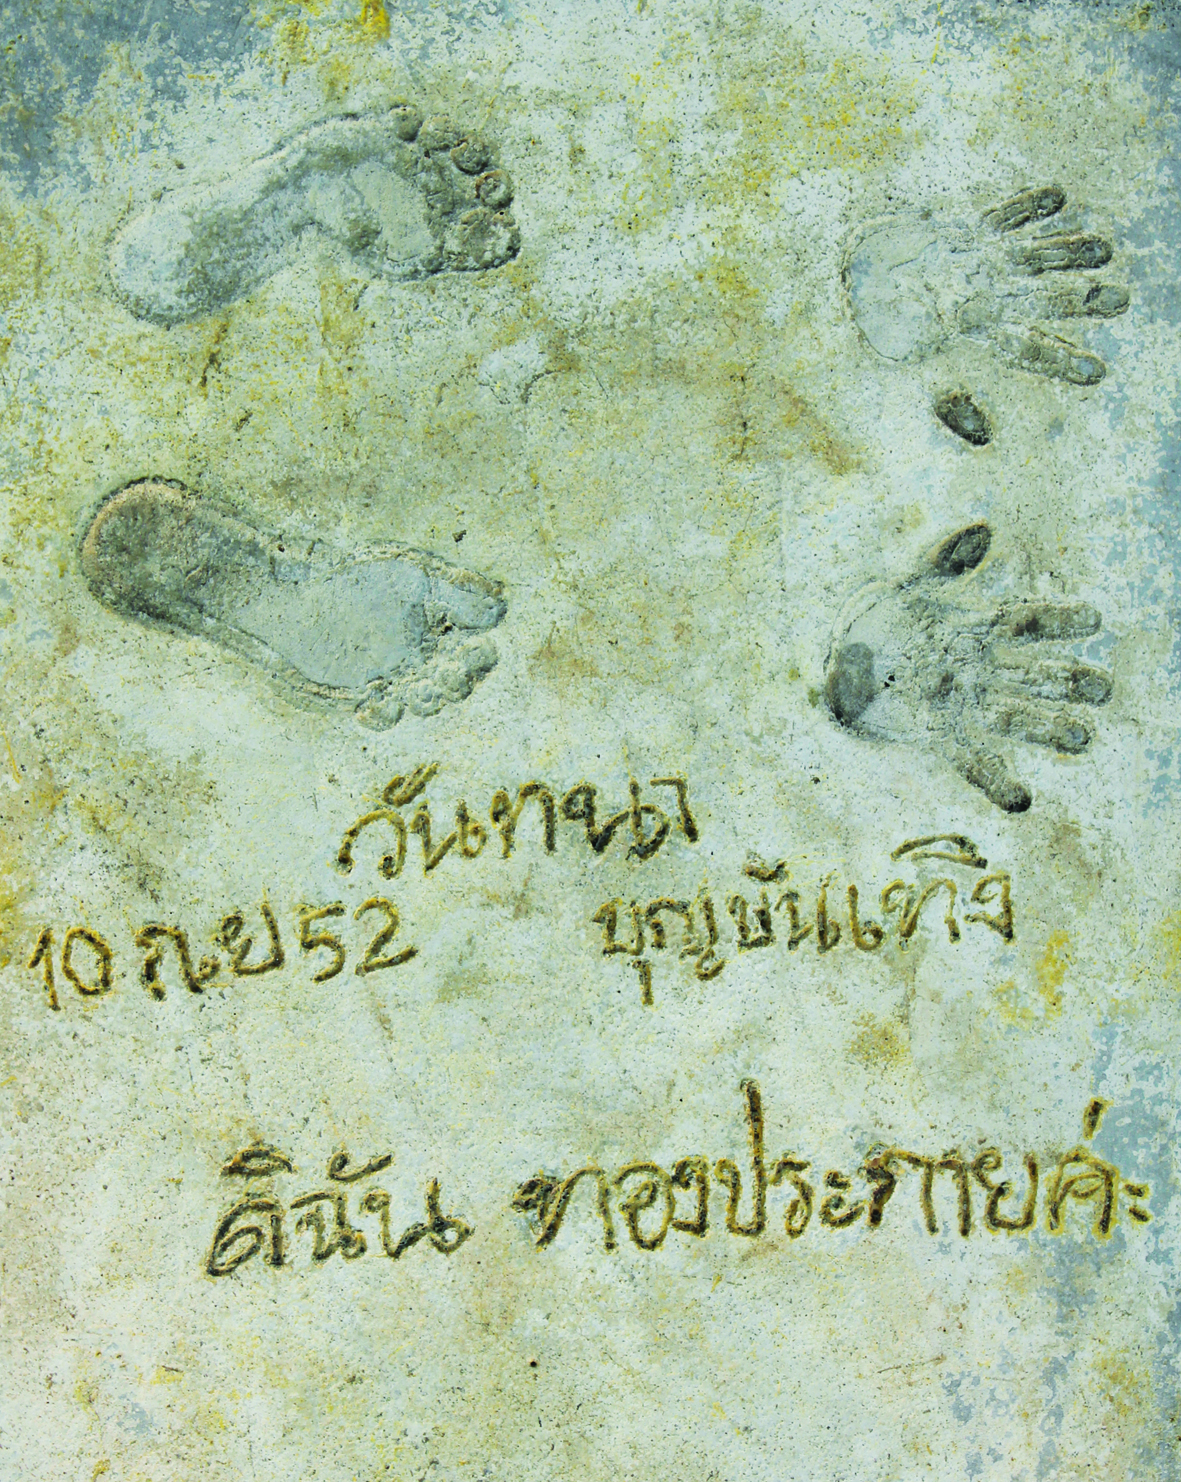 วันทนา
บุญบันเทิง
10 กย 52
ดิฉัน ทองประกายค่ะ